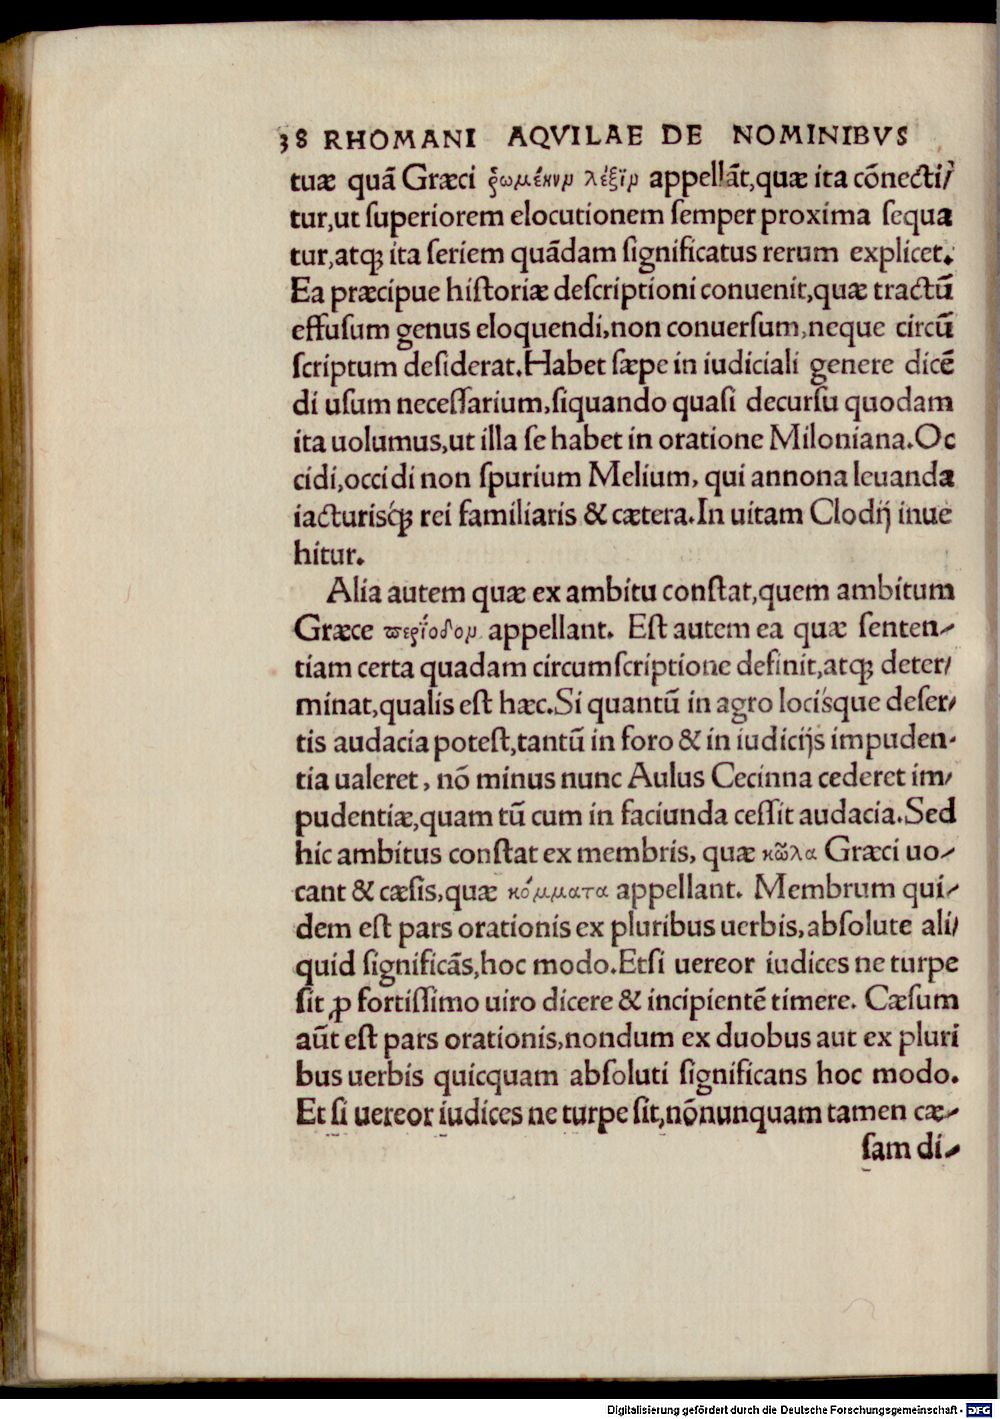 38 RHOMANI AQVILAE DE NOMINIBVS
tuæ quã Græci ῥωμένην λέξιν appellãt,quæ ita cõnecti/
tur,ut ſuperiorem elocutionem ſemper proxima ſequa
tur,atq; ita ſeriem quãdam ſignificatus rerum explicet.
Ea præcipue hiſtoriæ deſcriptioni conuenit,quæ tractũ
effuſum genus eloquendi,non conuerſum,neque circũ
ſcriptum deſiderat.Habet ſæpe in iudiciali genere dicẽ
di uſum neceſſarium,ſiquando quaſi decurſu quodam
ita uolumus,ut illa ſe habet in oratione Miloniana.Oc
cidi,occidi non ſpurium Melium, qui annona leuanda
iacturisq́; rei familiaris & cætera.In uitam Clodij inue
hitur.
Alia autem quæ ex ambitu conſtat,quem ambitum
Græce ϖερίοδον appellant. Eſt autem ea quæ ſenten-
tiam certa quadam circumſcriptione definit,atq; deter/
minat,qualis eſt hæc.Si quantũ in agro locisque deſer/
tis audacia poteſt,tantũ in foro & in iudicijs impuden-
tia ualeret, nõ minus nunc Aulus Cecinna cederet im/
pudentiæ,quam tũ cum in faciunda ceſſit audacia.Sed
hic ambitus conſtat ex membris, quæ κῶλα Græci uo-
cant & cæſis,quæ κόμματα appellant. Membrum qui-
dem eſt pars orationis ex pluribus uerbis,abſolute ali/
quid ſignificãs,hoc modo.Etſi uereor iudices ne turpe
ſit ꝓ fortiſſimo uiro dicere & incipientẽ timere. Cæſum
aũt eſt pars orationis,nondum ex duobus aut ex pluri
bus uerbis quicquam abſoluti ſignificans hoc modo.
Et ſi uereor iudices ne turpe ſit,nõnunquam tamen cæ-
ſam di-
Digitalisierung gefördert durch die Deutsche Forschungsgemeinschaft - DFG